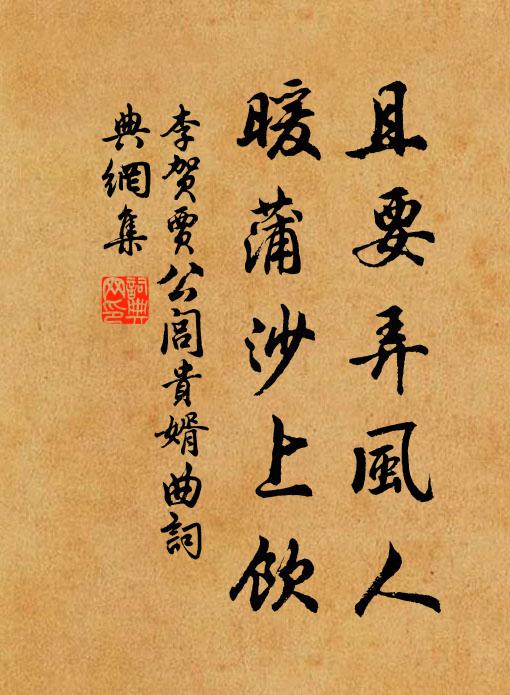 且要弄風人
暖蒲沙上飲
李賀賈公閭貴婿曲詞
典網集
詞典
網印